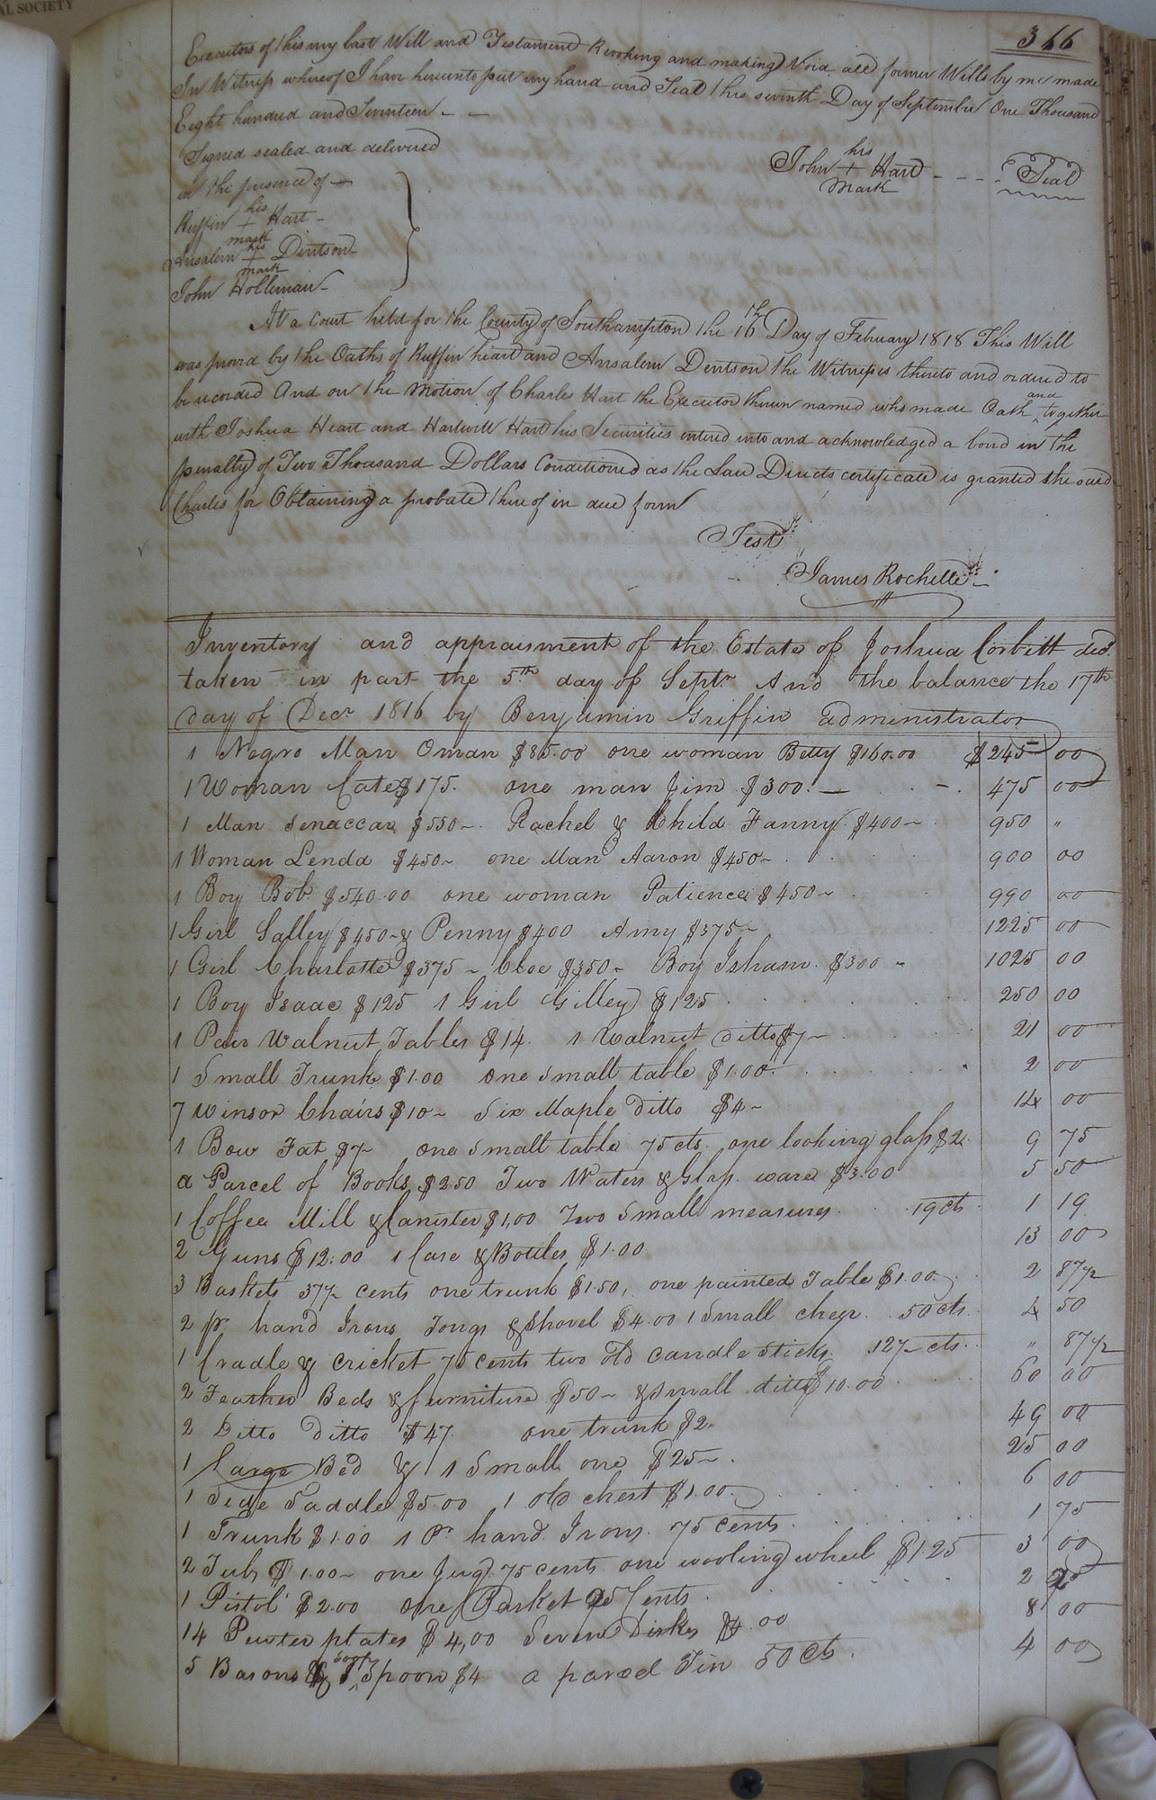 AL SOCIETY
366
Executors of this my last Will and Testament Revoking and making Void all former Wills by me made
In Witness whereof I have hereunto put my hand and Seal this seventh Day of September One Thousand
Eight hundred and Seventeen - -
Signed sealed and delivered
in the presence of -
his
John + Hart - - - - Seal
Mark
his
Ruffin + Hart -
mark
his
Ansalem + Dentson
mark
John Holleman -
At a Court held for the County of Southampton the 16th Day of February 1818 This Will
was proved by the Oaths of Ruffin heart and Ansalem Dentson the Witnesses thereto and ordered to
be recorded And on the Motion of Charles Hart the Executor therein named who made Oath and together
with Joshua Heart and Hartwell Hart his Securities entered into and acknowledged a bond in the
penalty of Two Thousand Dollars Conditioned as the Law Directs certificate is granted the said
Charles for Obtaining a probate thereof in due form
Test
James Rochelle
Inventory and appraisment of the Estate of Joshua Corbitt decd.
taken in part the 5th day of Septr. And the balance the 17th
day of Decr 1816 by Benjamin Griffin administrator
1 Negro Man Oman $85.00 one woman Betty $160.00 $245 00
1 Woman Cate $175. one man Jim $300. - 475 00
1 Man Senaccar $550 - Rachel & Child Fanny $400 - 950 "
1 Woman Lenda $450 - one Man Aaron $450 - 900 00
1 Boy Bob $540.00 one woman Patience $450 - 990 00
1 Girl Salley $450 - & Penny $400 Amy $375 - 1225 00
1 Girl Charlotte $375 - Cloe $350 - Boy Isham $300 - 1025 00
1 Boy Isaac $125 1 Girl Gilley $125 250 00
1 Pair Walnut Tables $14 1 Walnut ditto $7 - 21 00
1 Small Trunk $1.00 one small table $1.00 2 00
7 Winsor Chairs $10 - Six Maple Ditto $4 - 14 00
1 Bow Fat $7 one small table 75 cts. one looking glass $2 9 75
a Parcel of Books $2.50 Two Waters & Glass ware $3.00 5 50
1 Coffee Mill & Canister $1,00 Two Small measures 19 cts 1 19
2 Guns $12.00 1 Case & Bottles $1.00 13 00
3 Baskets 37½ cents one trunk $1.50, one painted Table $1.00 2 87½
2 pr hand Irons Tongs & Shovel $4.00 1 Small chear 50 cts. 4 50
1 Cradle & cricket 75 cents two old candle sticks 12½ cts. " 87½
2 Feather Beds & furniture $50 - & Small ditto $10.00 60 00
2 Ditto Ditto $47 one trunk $2. 49 00
1 Large Bed & 1 Small one $25 - . 25 00
1 Side Saddle $5.00 1 old chest $1.00 6 00
1 Trunk $1.00 1 Pr hand Irons 75 cents 1 75
2 Tubs $1.00 - one Jug 75 cents one wooling wheel $1.25 3 00
1 Pistol $2.00 one Basket 25 Cents 2 25
14 Pewter plates $4,00 Seven Dishes $4.00 8 00
5 Basons & Spoon $4 a parcel Tin 50 Cts. 4 00